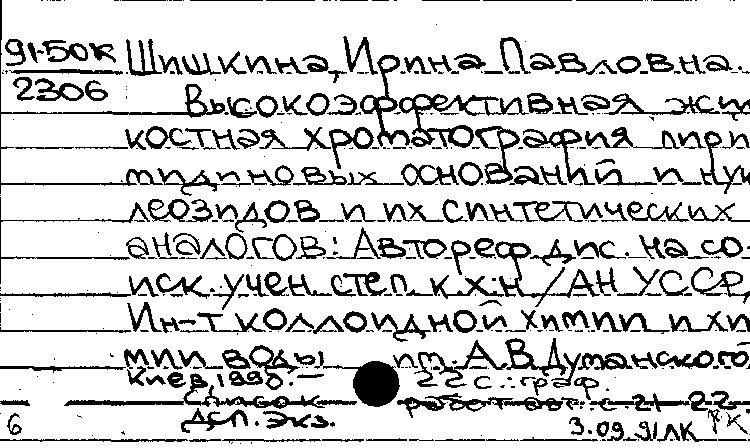 91-50к Шишкина, Ирина Павловна.
2306 Высокоэффективная жид
костная хроматография пири
мидиновых оснований и нук
леозидов и их синтетических
аналогов: Автореф. дис. на со
иск. учен. степ. к.х.н. / АН УССР,
Ин-т коллоидной химии и хи
мии воды им. А.В. Думанского
Киев, 1990. — 22 с.: граф.
Список работ авт.: с. 21-22.
ДСП. Экз.
6 3.09.91 ЛК